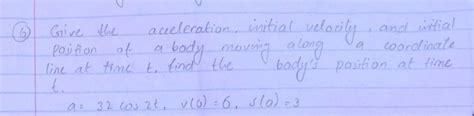 ⑥ Give the acceleration, initial velocity, and initial
position of a body moving along a coordinate
line at time t, find the body's position at time
t.
a = 32 cos 2t, v(0) = 6, s(0) = 3